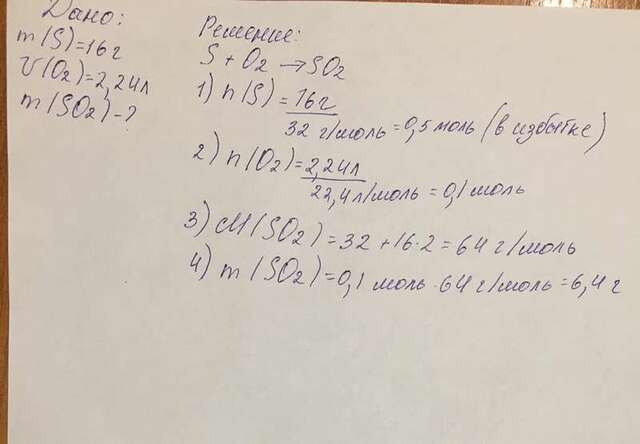 Дано:
m(S)=16г
V(O2)=2,24л
m(SO2)-?
Решение:
S+O2→SO2
1) n(S)=16г
32 г/моль=0,5моль (в избытке)
2) n(O2)=2,24л
22,4л/моль=0,1моль
3) M(SO2)=32+16·2=64г/моль
4) m(SO2)=0,1 моль·64г/моль=6,4г